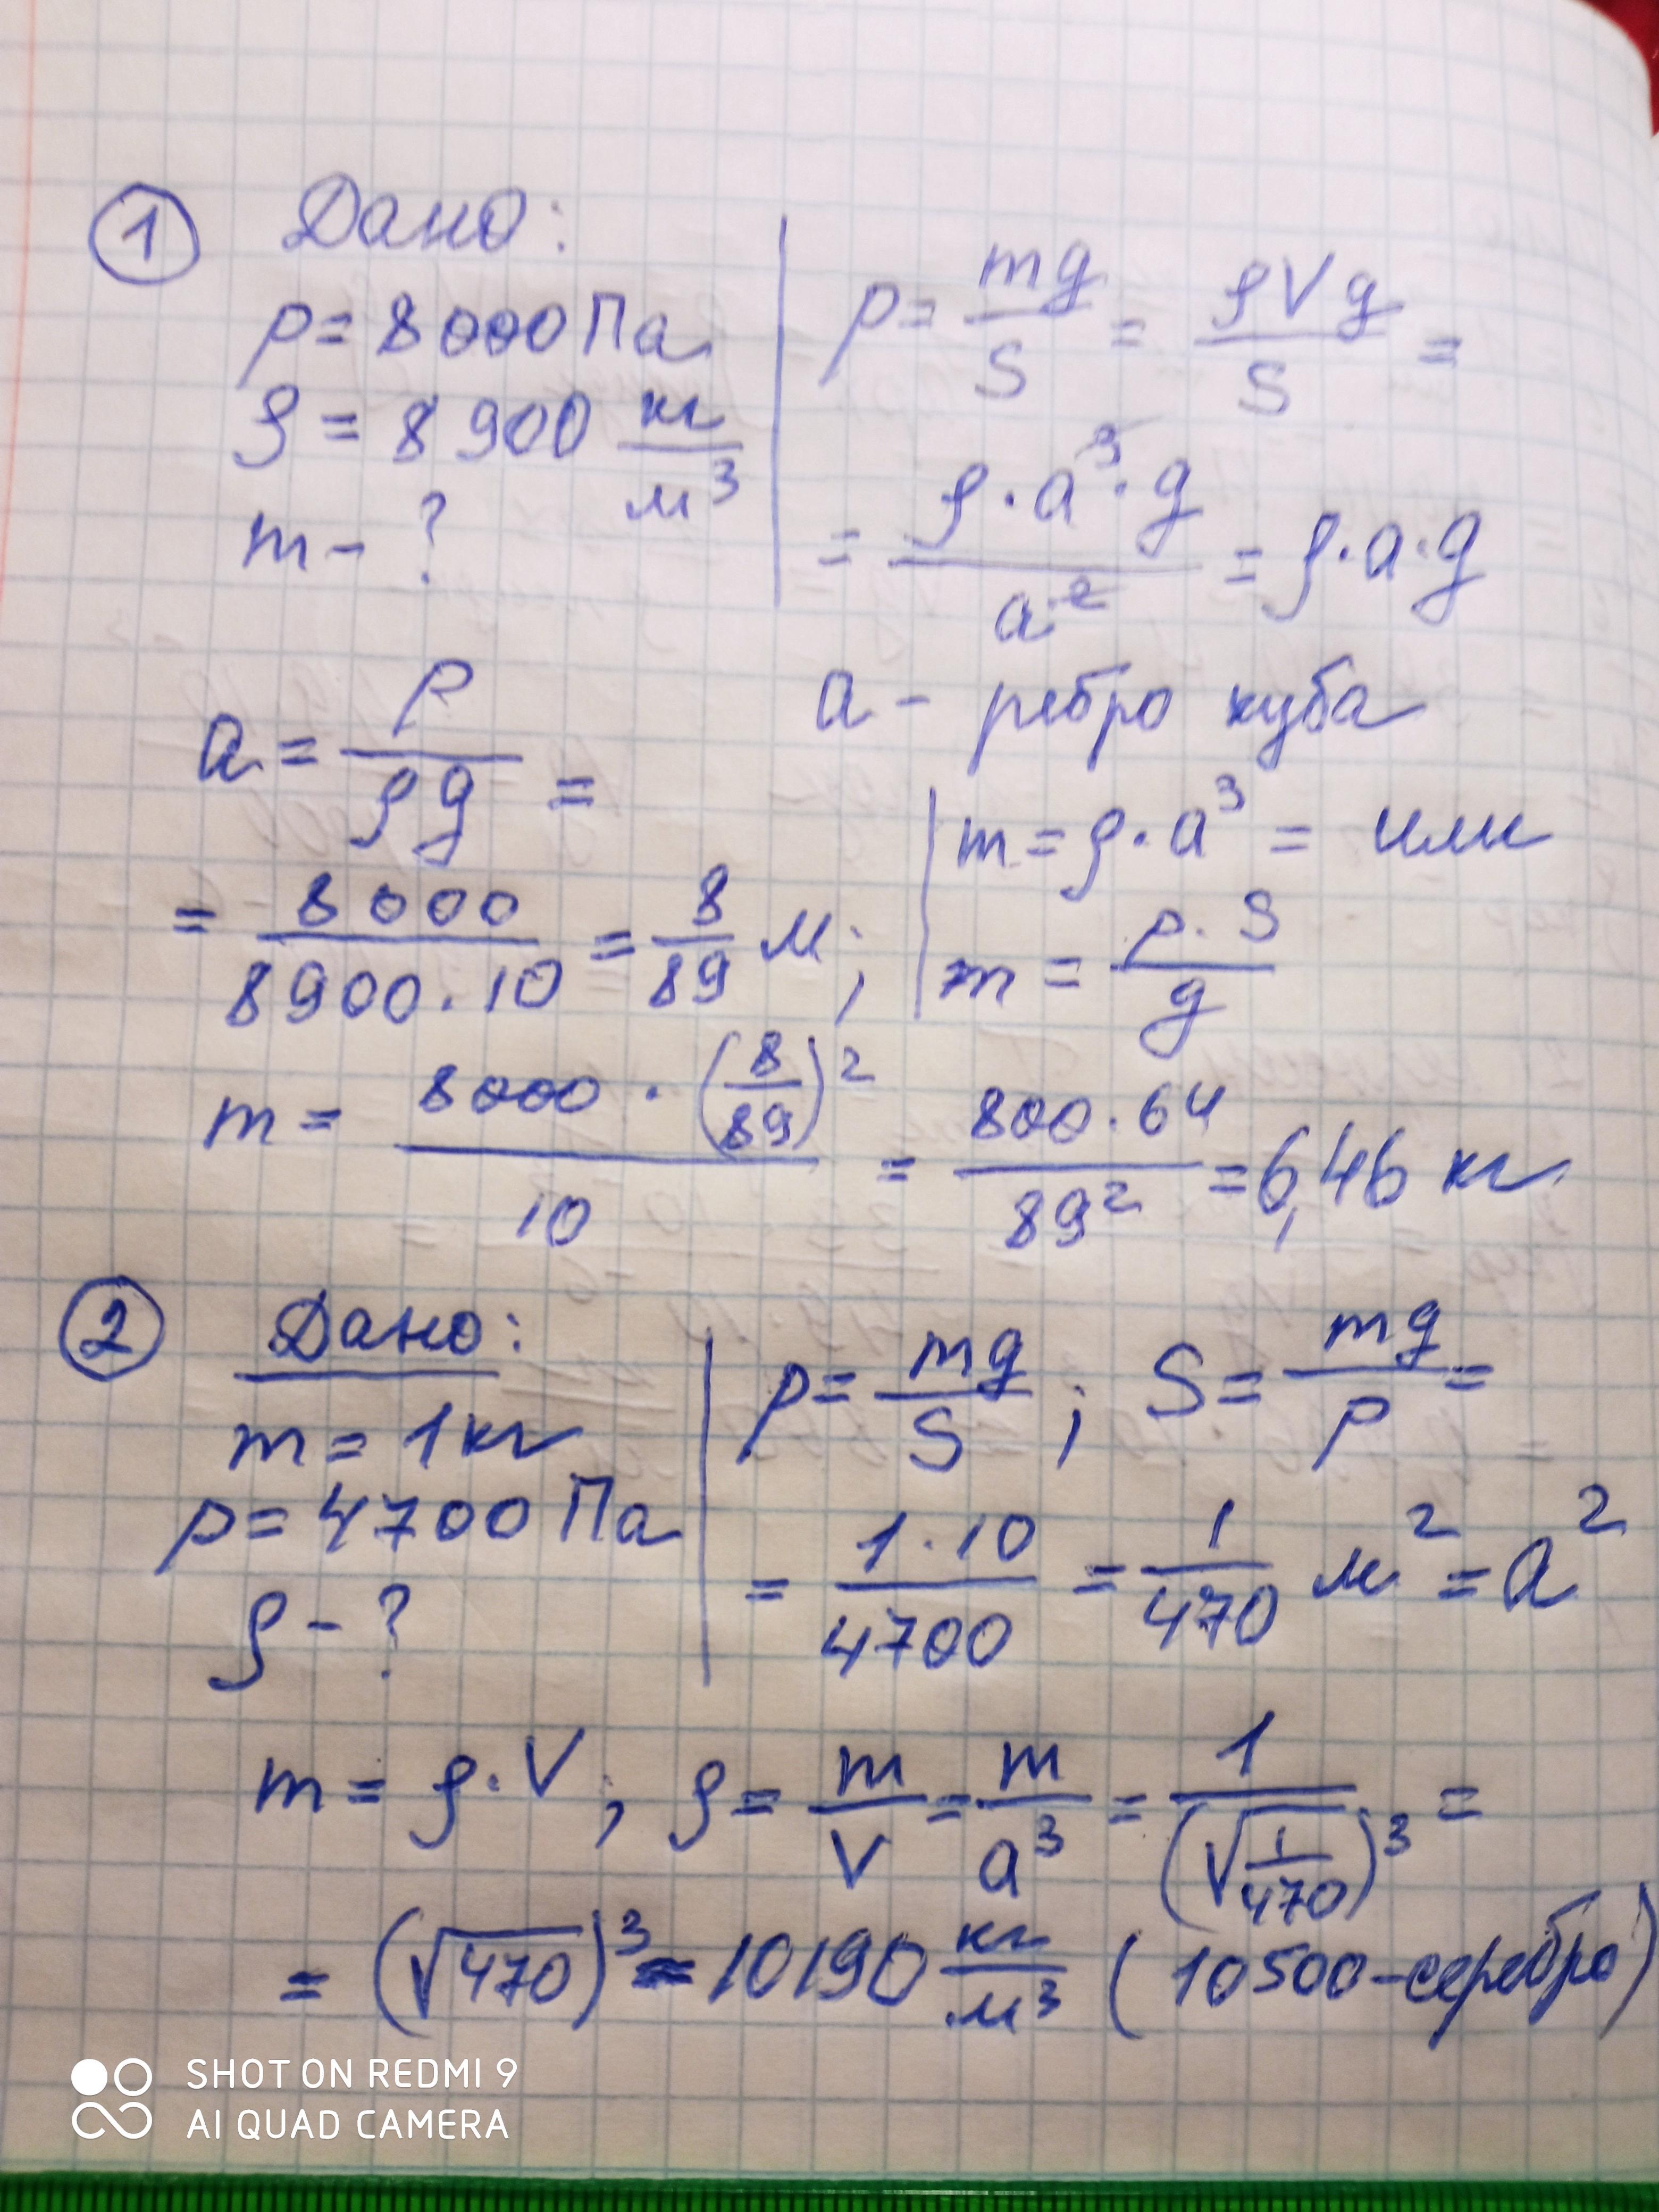 ① Дано:
p = 8000 Па
ρ = 8900 кг/м³
m - ?
p = mg/S = ρVg/S =
= ρ·a³·g/a² = ρ·a·g
a - ребро куба
a = p/ρg =
= 8000/8900·10 = 8/89 м;
m = ρ·a³ = или
m = p·S/g
m = 8000·(8/89)²/10 = 800·64/89² = 6,46 кг
② Дано:
m = 1 кг
p = 4700 Па
ρ - ?
p = mg/S ; S = mg/p =
= 1·10/4700 = 1/470 м² = a²
m = ρ·V ; ρ = m/V = m/a³ = 1/(√(1/470))³ =
= (√470)³ = 10190 кг/м³ (10500 - серебро)
SHOT ON REDMI 9
AI QUAD CAMERA